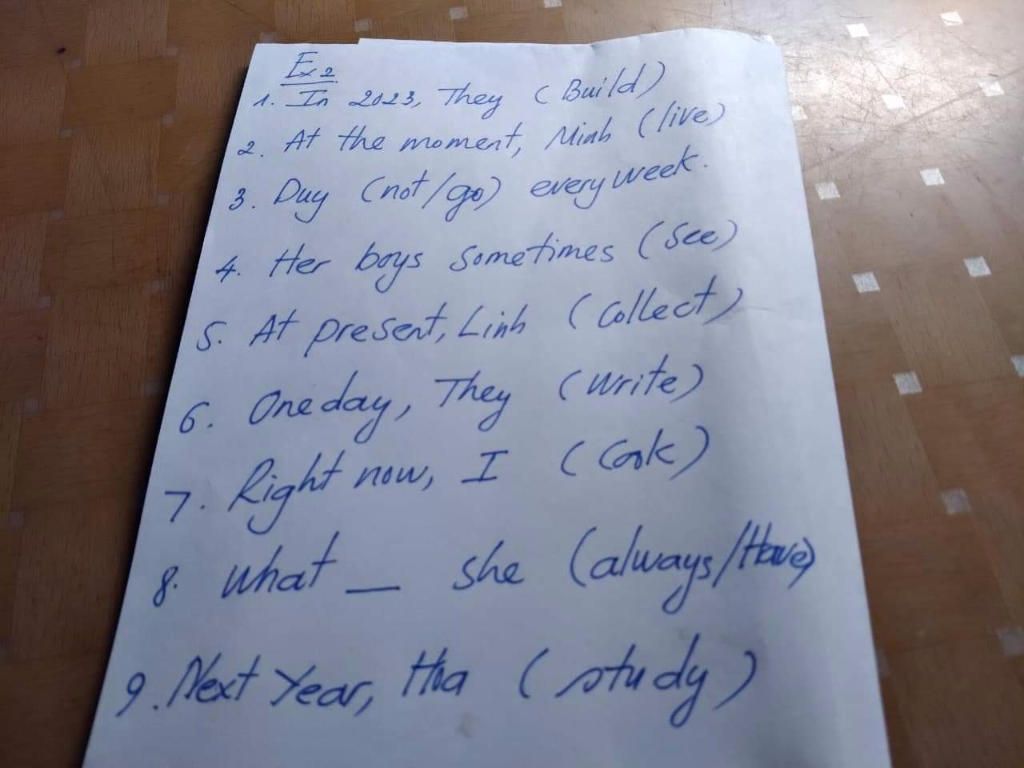 Ex 2
1. In 2023, They (Build)
2. At the moment, Minh (live)
3. Duy (not/go) every week.
4. Her boys sometimes (see)
5. At present, Linh (collect)
6. One day, They (write)
7. Right now, I (Cook)
8. what _ she (always/Have)
9. Next Year, Hoa (study)